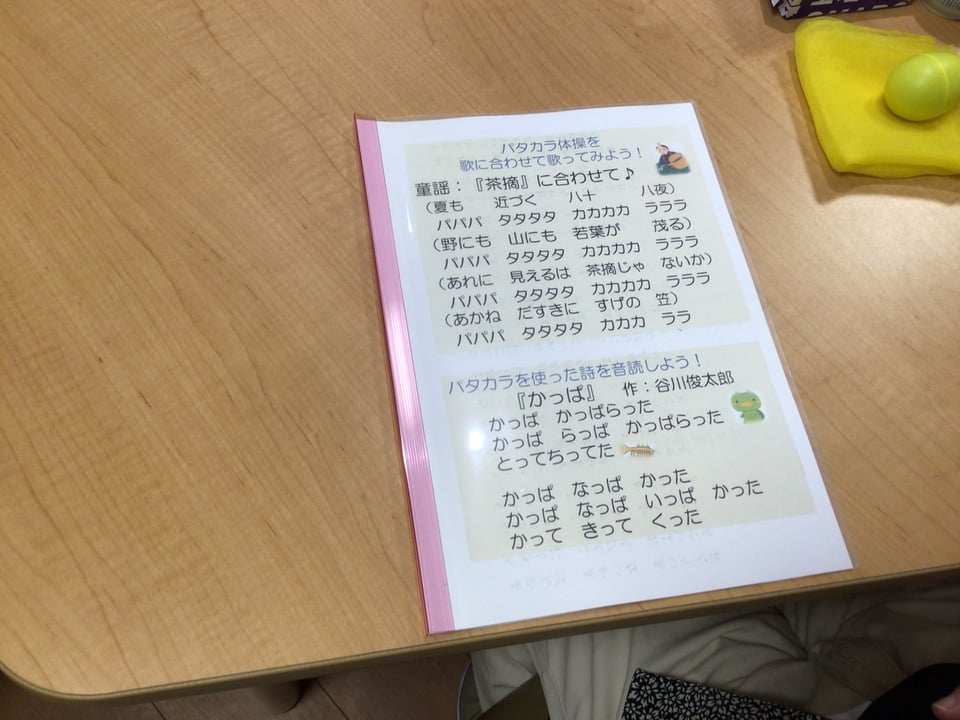 パタカラ体操を
歌に合わせて歌ってみよう！
童謡：『茶摘』に合わせて♪
（夏も　近づく　八十　八夜）
パパパ　タタタタ　カカカカ　ラララ
（野にも　山にも　若葉が　茂る）
パパパ　タタタタ　カカカカ　ラララ
（あれに　見えるは　茶摘じゃ　ないか）
パパパ　タタタタ　カカカカ　ラララ
（あかね　だすきに　すげの　笠）
パパパ　タタタタ　カカカ　ララ
パタカラを使った詩を音読しよう！
『かっぱ』　作：谷川俊太郎
かっぱ　かっぱらった
かっぱ　らっぱ　かっぱらった
とってちってた
かっぱ　なっぱ　かった
かっぱ　なっぱ　いっぱ　かった
かって　きって　くった